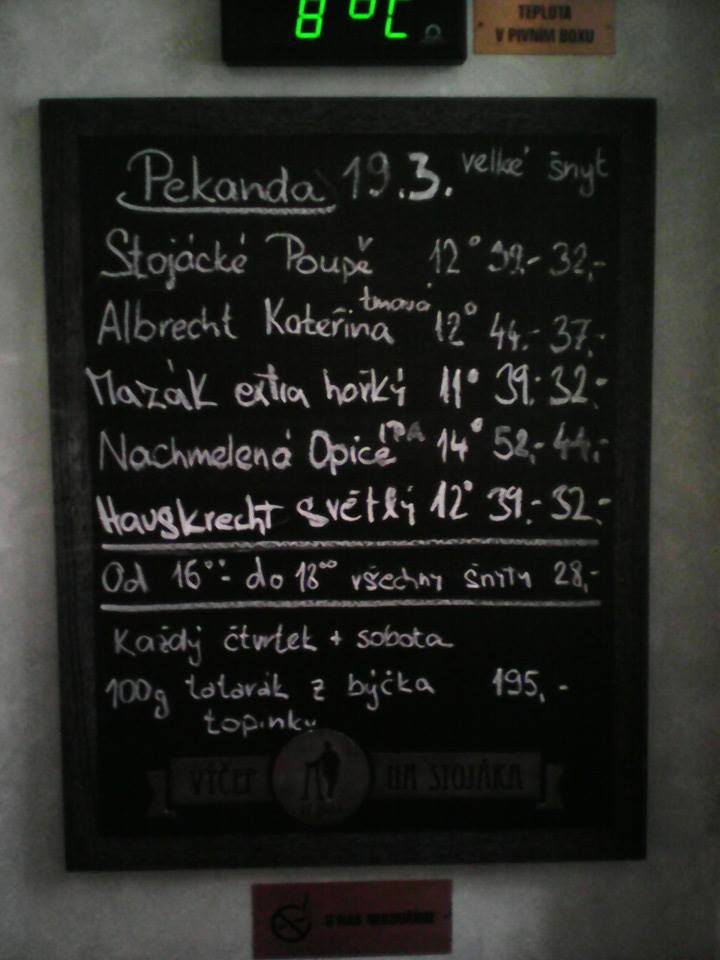 8°C
TEPLOTA
V PIVNÍM BOXU
Pekanda 19.3. velké šnyt
Stojácké Poupě 12° 39,- 32,-
Albrecht Kateřina tmavá 12° 44.- 37,-
Mazák extra hořký 11° 39.- 32.-
Nachmelená Opice IPA 14° 52,- 44,-
Hauskrecht světlý 12° 39.- 32.-
Od 16⁰⁰- do 18⁰⁰ všechny šnity 28,-
Každý čtvrtek + sobota
100g tatarák z býčka 195,-
topinky
VÝČEP NA STOJÁKA
U NÁS NEKOUŘÍME